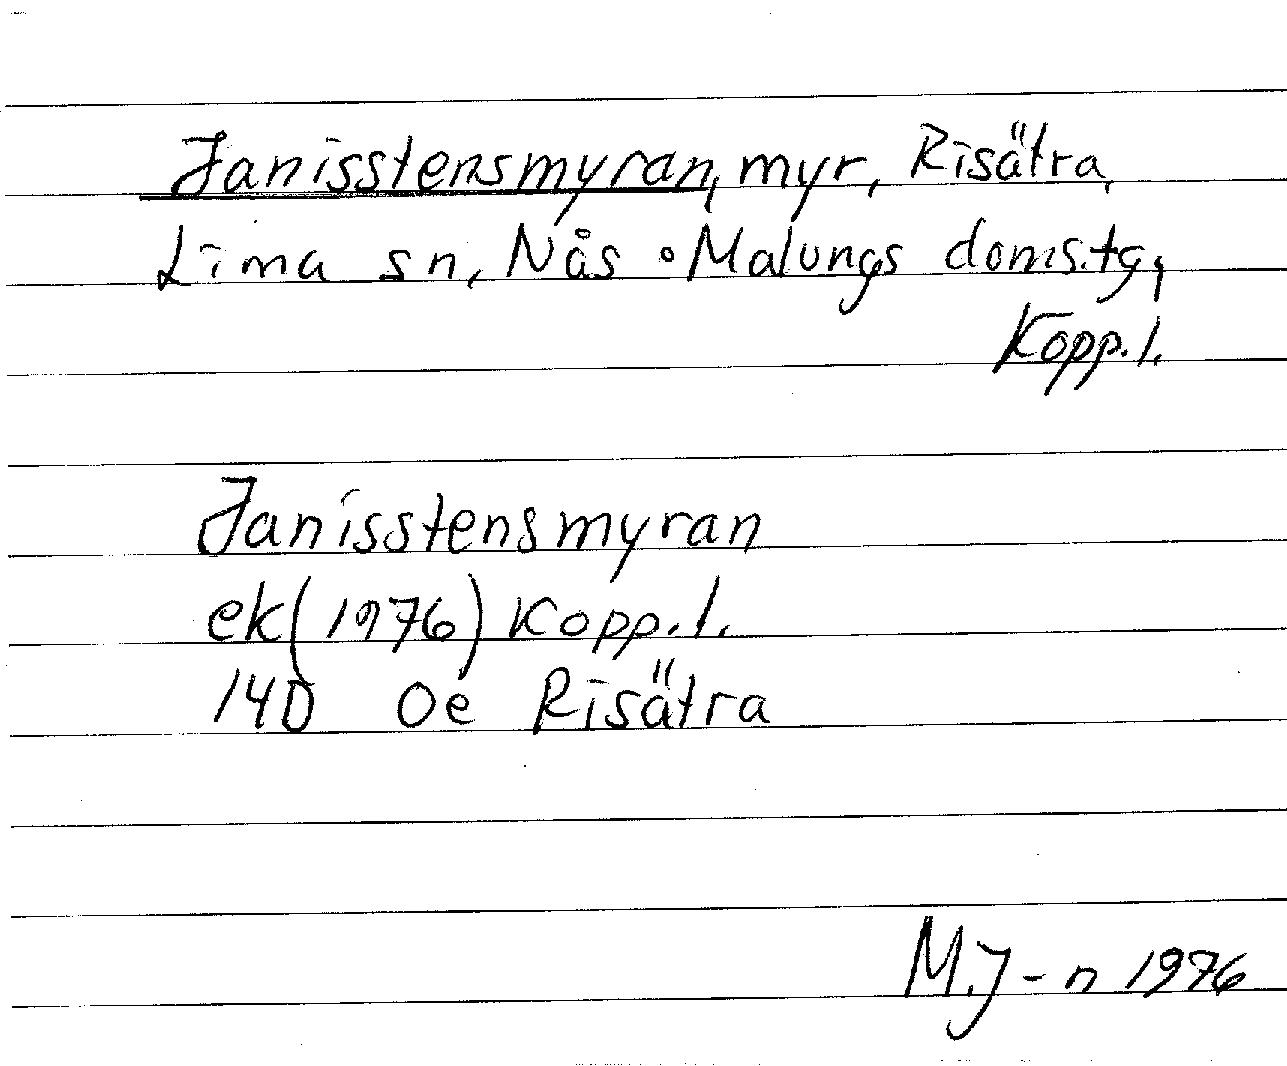 Janisstensmyran, myr, Risätra,
Lima sn, Nås o Malungs doms.tg,
Kopp.l.
Janisstensmyran
ek(1976) Kopp.l.
14D 0e Risätra
M.J-n 1976